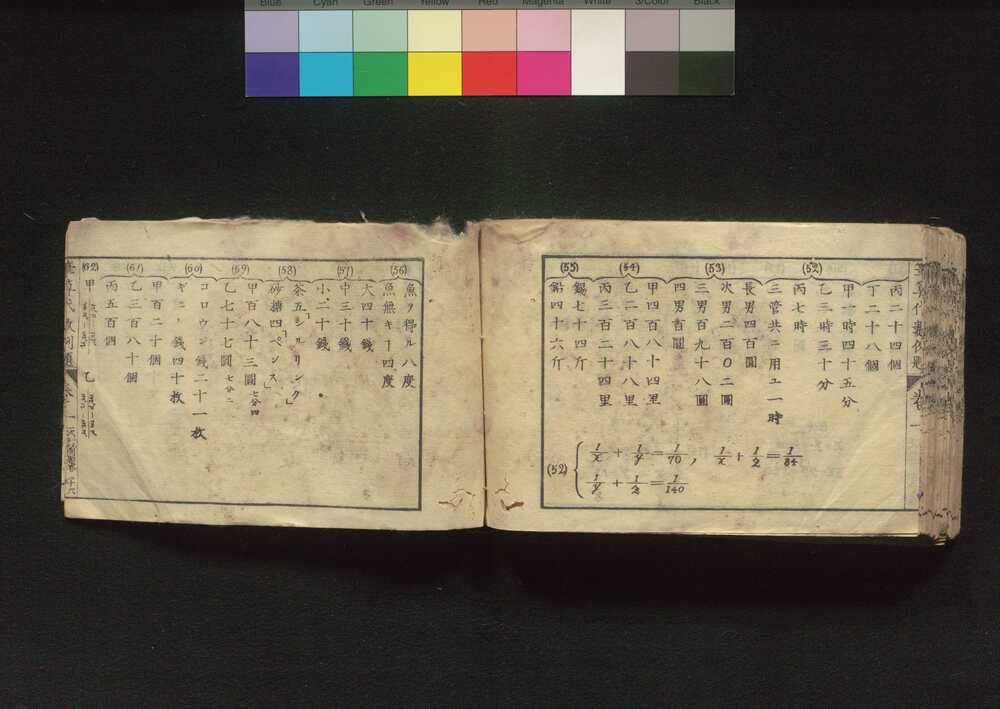 Blue Cyan Green Yellow Red Magenta White 3/Color Black
丙二十四個
丁二十八個
(52)
甲一時四十五分
乙二時三十分
丙七時間
三管共ニ用ユ一時
(53)
長男四百圓
次男二百〇二圓
三男百九十八圓
四男百圓
(54)
甲四百八十四里
乙二百八十八里
丙三百二十四里
(55)
錫七十四斤
鉛四十六斤
(52) { 1/x + 1/y = 1/70, 1/x + 1/z = 1/84
1/y + 1/z = 1/140
(56)
魚ヲ得ル八度
魚無キ十四度
(57)
大四十錢
中三十錢
小二十錢
(58)
茶五「シルリング」
砂糖四「ペンス」
(59)
甲百八十三圓七分四
乙七十七圓七分二
(60)
コロウン錢二十一枚
ギニー錢四十枚
(61)
甲百二十個
乙三百八十個
丙五百個
(62)
甲
乙